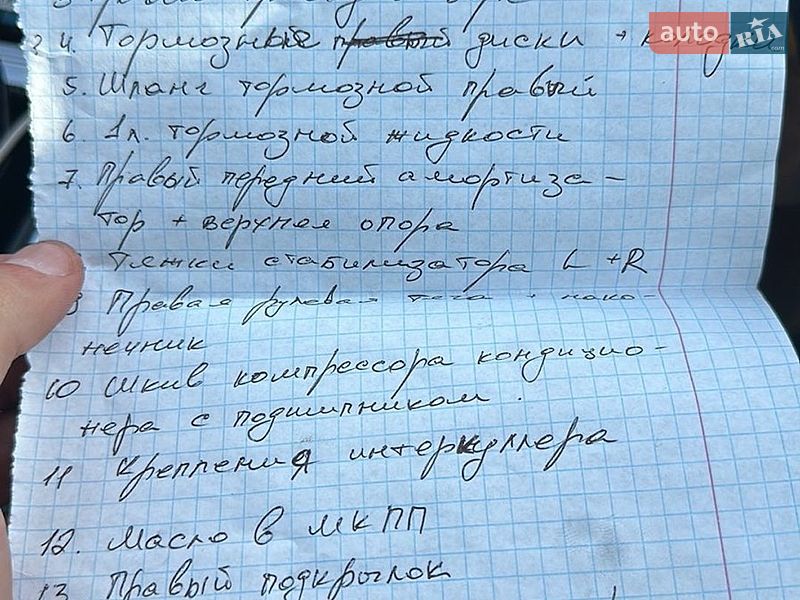 4. Тормозные правый диски +
5. Шланг тормозной правый
6. 1л. тормозной жидкости
7. Правый передний амортиза-
тор + верхняя опора
Тяжки стабилизатора L + R
Правая рулевая тяга + нако-
нечник
10 Шкив компрессора кондицио-
нера с подшипником.
11 Крепления интеркуллера
12. Масло в МКПП
13 Правый подкрылок
auto RIA
.com